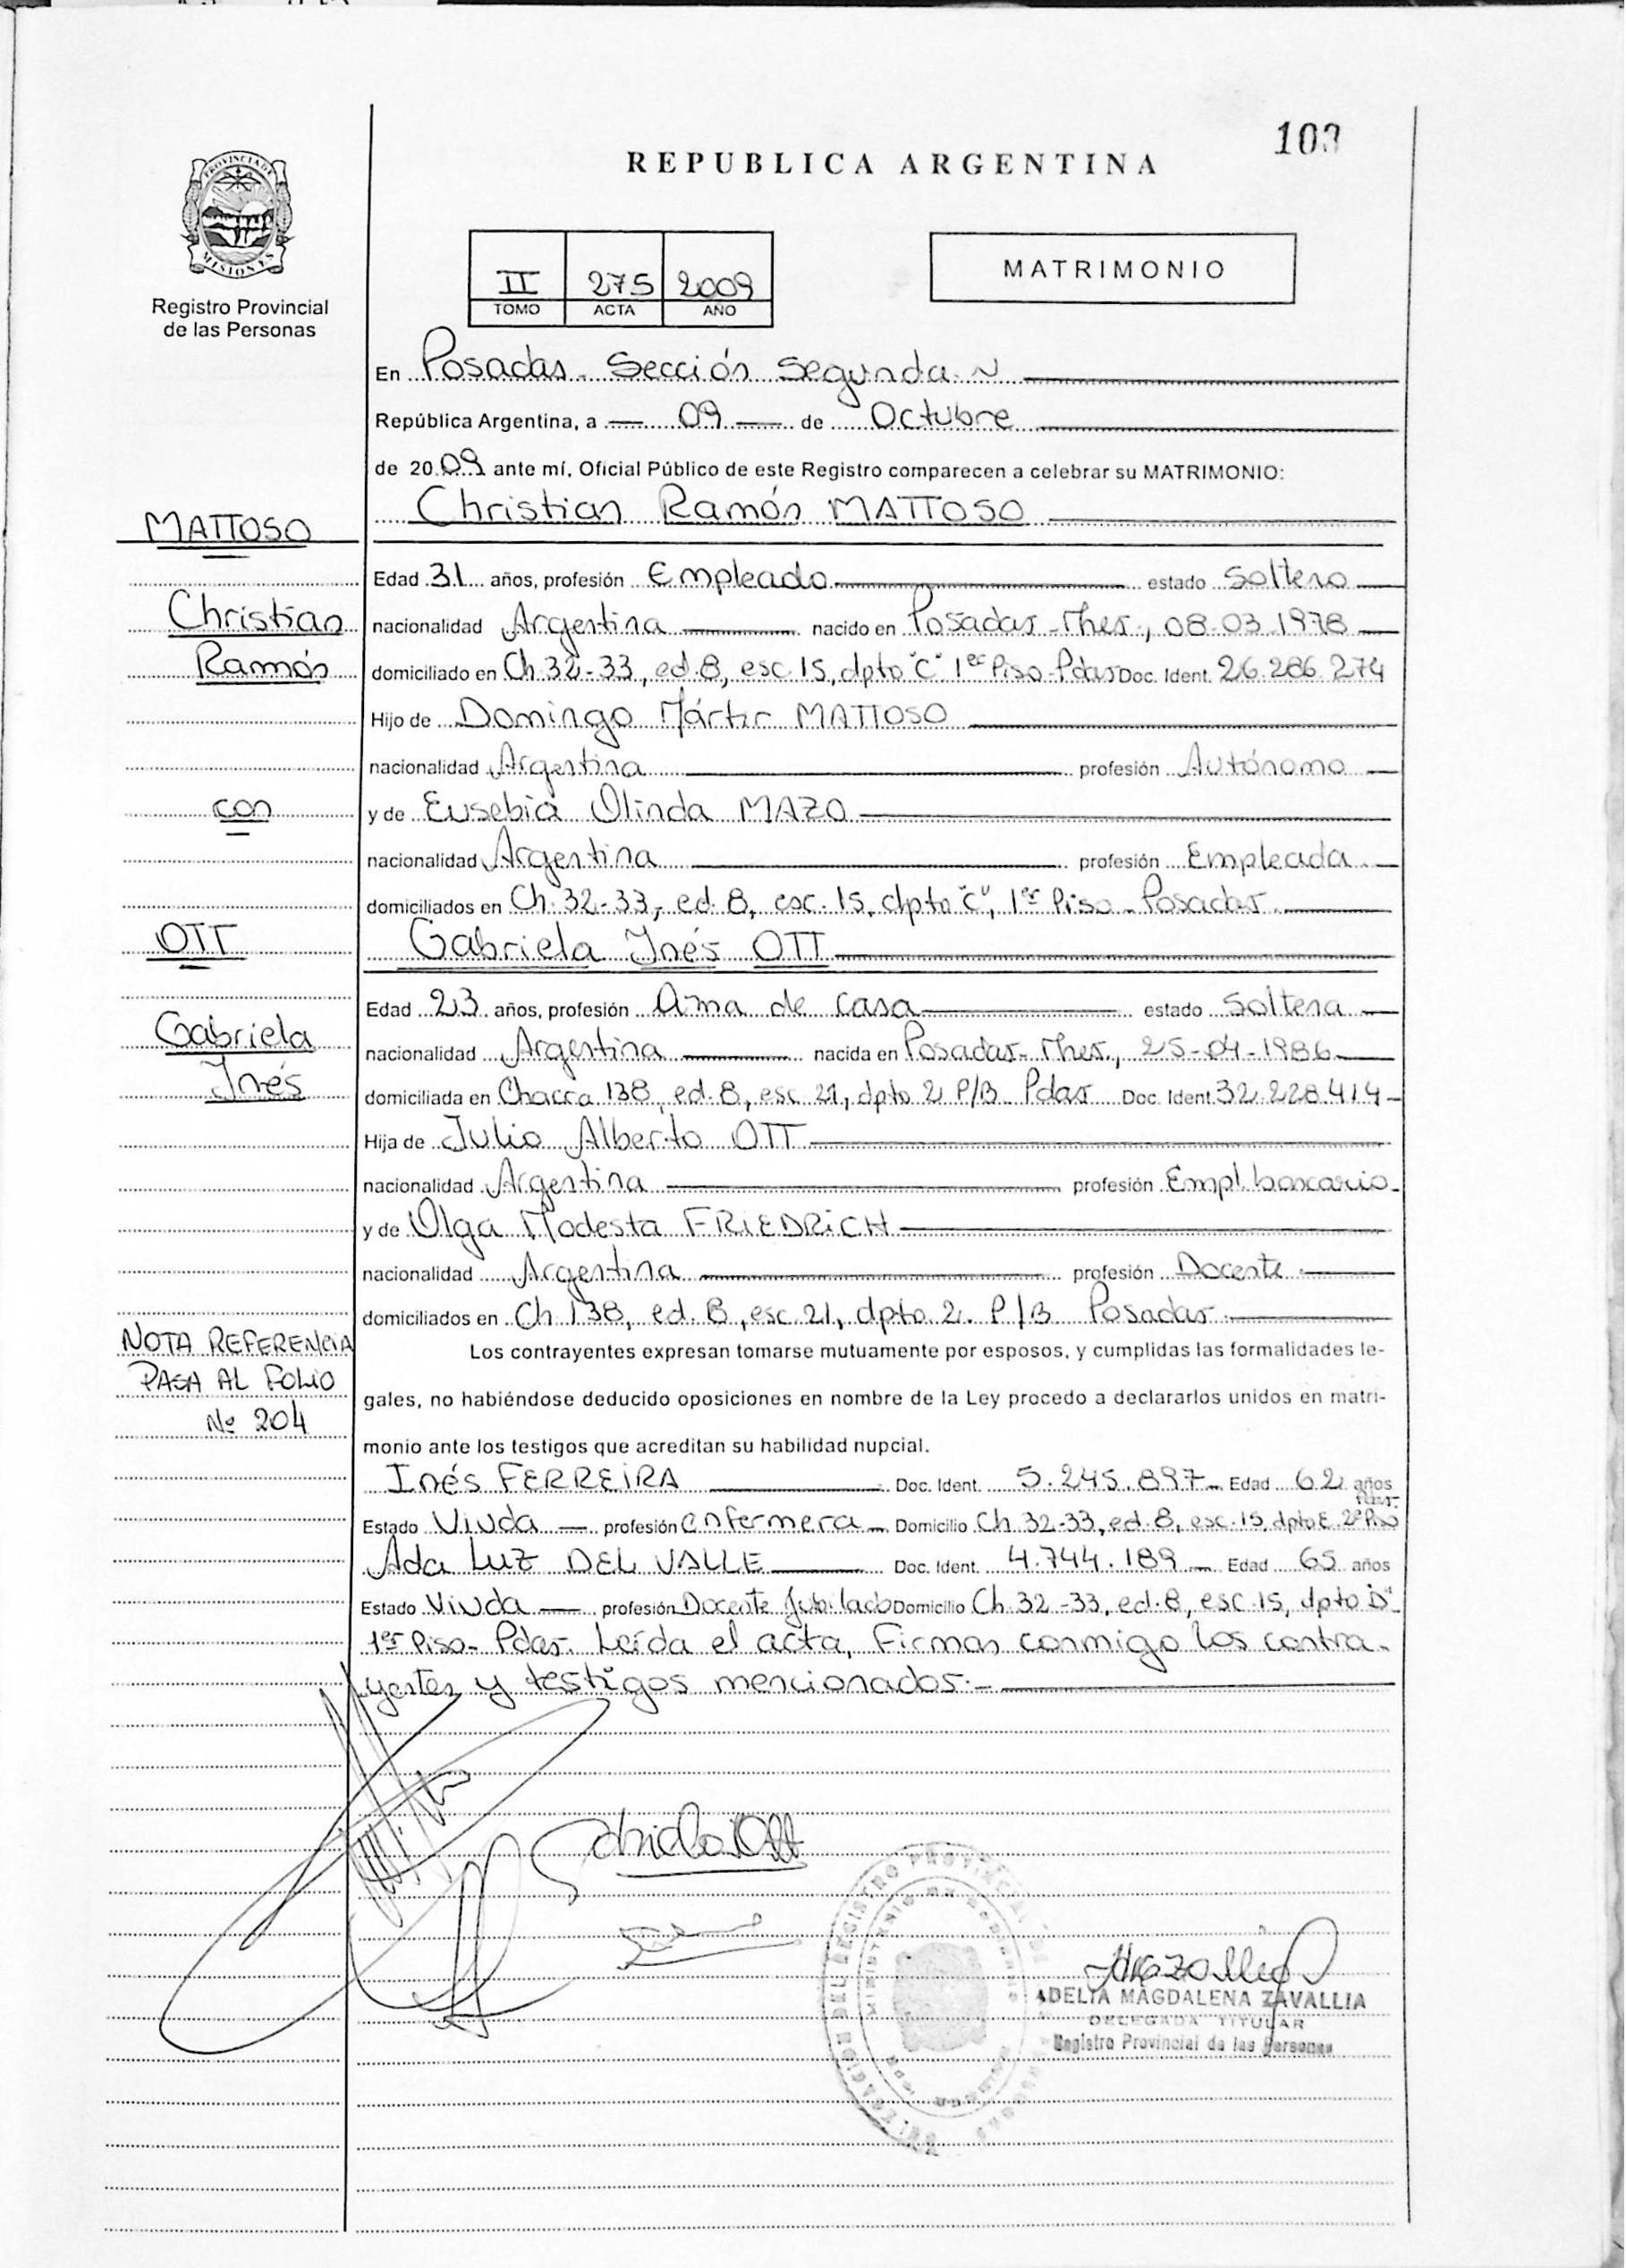 103
REPUBLICA ARGENTINA
PROVINCIA DE
MISIONES
Registro Provincial
de las Personas
II 275 2009
TOMO ACTA AÑO
MATRIMONIO
En Posadas - Sección Segunda
República Argentina, a — 09 — de Octubre
de 2009 ante mí, Oficial Público de este Registro comparecen a celebrar su MATRIMONIO:
Christian Ramón MATTOSO
MATTOSO
Edad 31 años, profesión Empleado estado Soltero
Christian
nacionalidad Argentina nacido en Posadas - Mnes., 08-03-1978
Ramón
domiciliado en Ch 32-33, ed. 8, esc 15, dpto "C" 1er Piso-Pdas Doc. Ident. 26.286.274
Hijo de Domingo Mártir MATTOSO
nacionalidad Argentina profesión Autónomo
con
y de Eusebia Olinda MAZO
nacionalidad Argentina profesión Empleada
domiciliados en Ch. 32-33, ed. 8, esc. 15, dpto "C", 1er Piso - Posadas
OTT
Gabriela Inés OTT
Edad 23 años, profesión Ama de casa estado Soltera
Gabriela
nacionalidad Argentina nacida en Posadas - Mnes., 25-04-1986
Inés
domiciliada en Chacra 138, ed. 8, esc 21, dpto 2 P/B Pdas Doc. Ident. 32.228.414
Hija de Julio Alberto OTT
nacionalidad Argentina profesión Empl. bancario
y de Olga Modesta FRIEDRICH
nacionalidad Argentina profesión Docente
domiciliados en Ch 138, ed. 8, esc. 21, dpto. 2. P/B Posadas
NOTA REFERENCIA
PASA AL FOLIO
Nº 204
Los contrayentes expresan tomarse mutuamente por esposos, y cumplidas las formalidades le-
gales, no habiéndose deducido oposiciones en nombre de la Ley procedo a declararlos unidos en matri-
monio ante los testigos que acreditan su habilidad nupcial.
Inés FERREIRA Doc. Ident. 5.245.897 Edad 62 años
Estado Viuda profesión enfermera Domicilio Ch 32-33, ed. 8, esc. 15, dpto E 2º Piso Pdas.
Ada Luz DEL VALLE Doc. Ident. 4.744.189 Edad 65 años
Estado Viuda profesión Docente Jubilado Domicilio Ch. 32-33, ed. 8, esc. 15, dpto D"
1er Piso - Pdas. Leída el acta, Firman conmigo los contra-
yentes y testigos mencionados.
Gabriela Ott
ADELIA MAGDALENA ZAVALLIA
DELEGADA TITULAR
Registro Provincial de las Personas